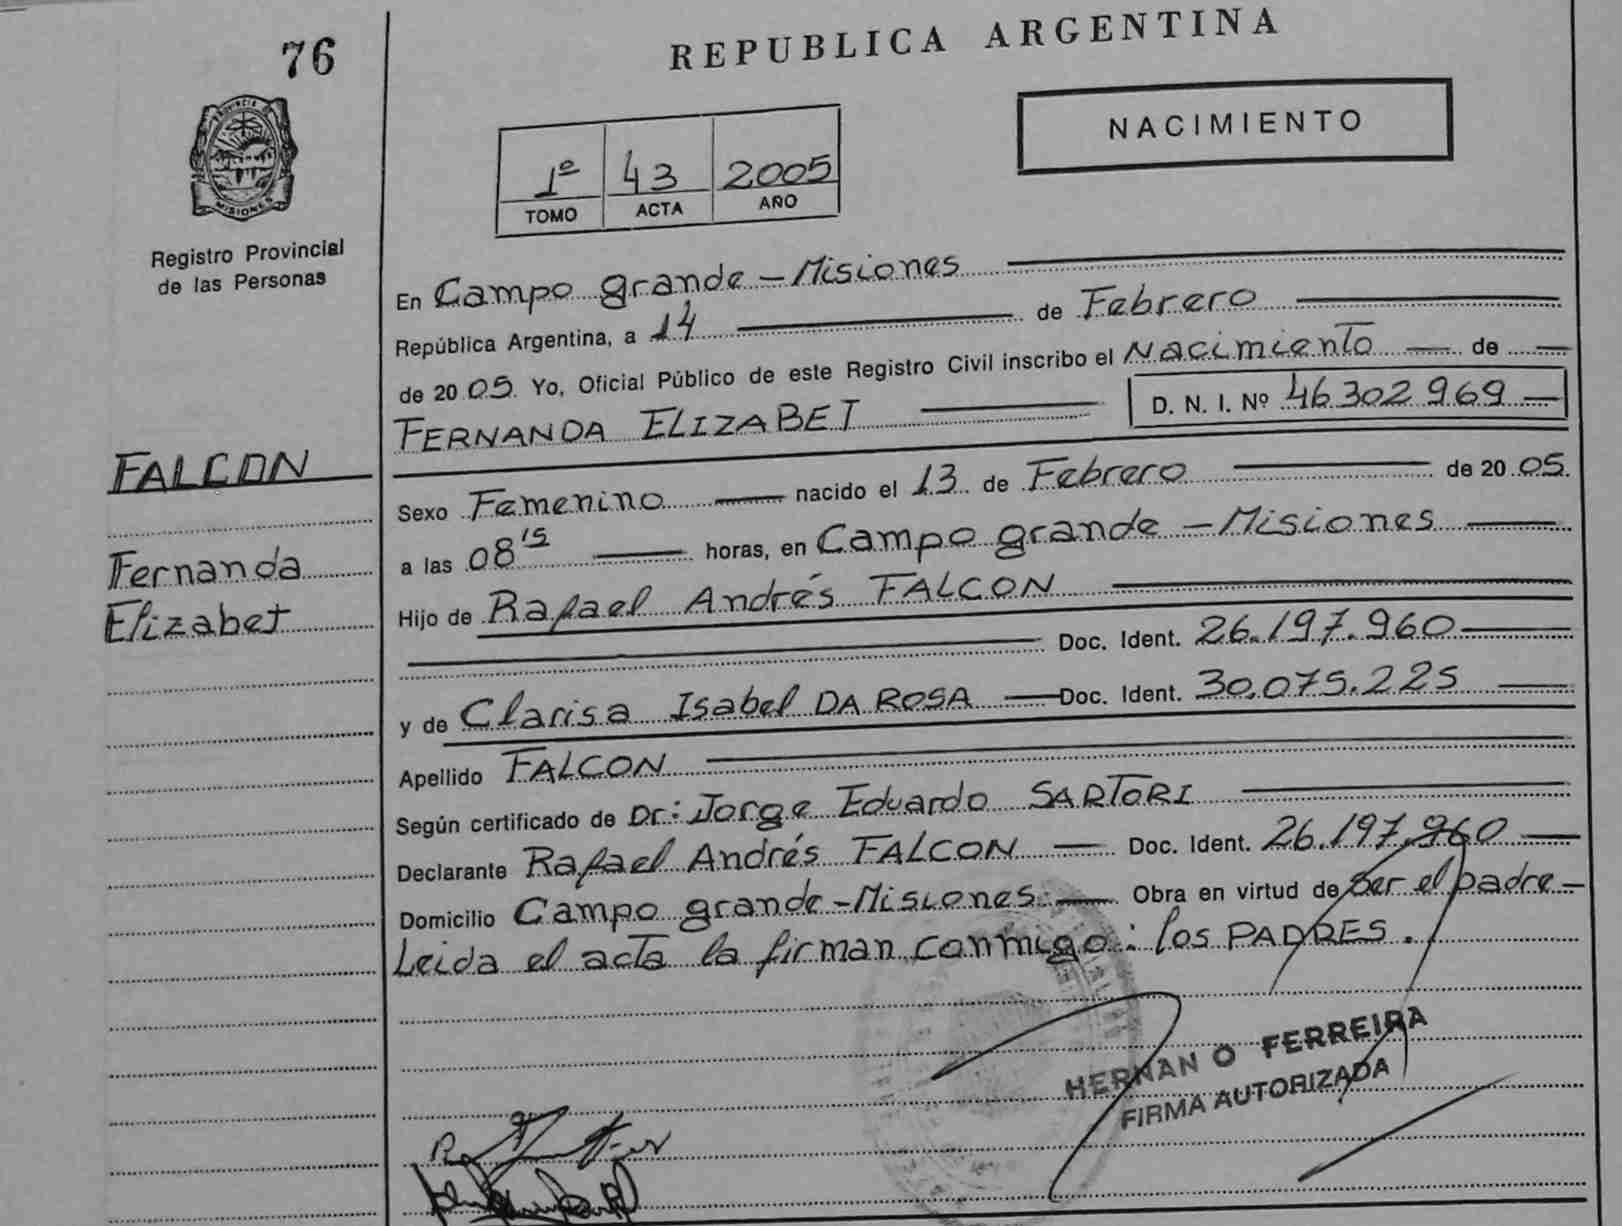 76
REPUBLICA ARGENTINA
PROVINCIA DE
MISIONES
Registro Provincial
de las Personas
NACIMIENTO
1º 43 2005
TOMO ACTA AÑO
En Campo grande - Misiones
República Argentina, a 14 de Febrero
de 2005 Yo, Oficial Público de este Registro Civil inscribo el Nacimiento — de —
FERNANDA ELIZABET D. N. I. Nº 46302969 —
FALCON
Sexo Femenino — nacido el 13 de Febrero — de 2005.
Fernanda
Elizabet
a las 08 15 — horas, en Campo grande - Misiones —
Hijo de Rafael Andrés FALCON
Doc. Ident. 26.197.960
y de Clarisa Isabel DA ROSA — Doc. Ident. 30.075.225 —
Apellido FALCON
Según certificado de Dr: Jorge Eduardo SARTORI
Declarante Rafael Andrés FALCON — Doc. Ident. 26.197.960 —
Domicilio Campo grande - Misiones. — Obra en virtud de ser el padre -
Leida el acta la firman conmigo: los PADRES.
HERNAN O FERREIRA
FIRMA AUTORIZADA